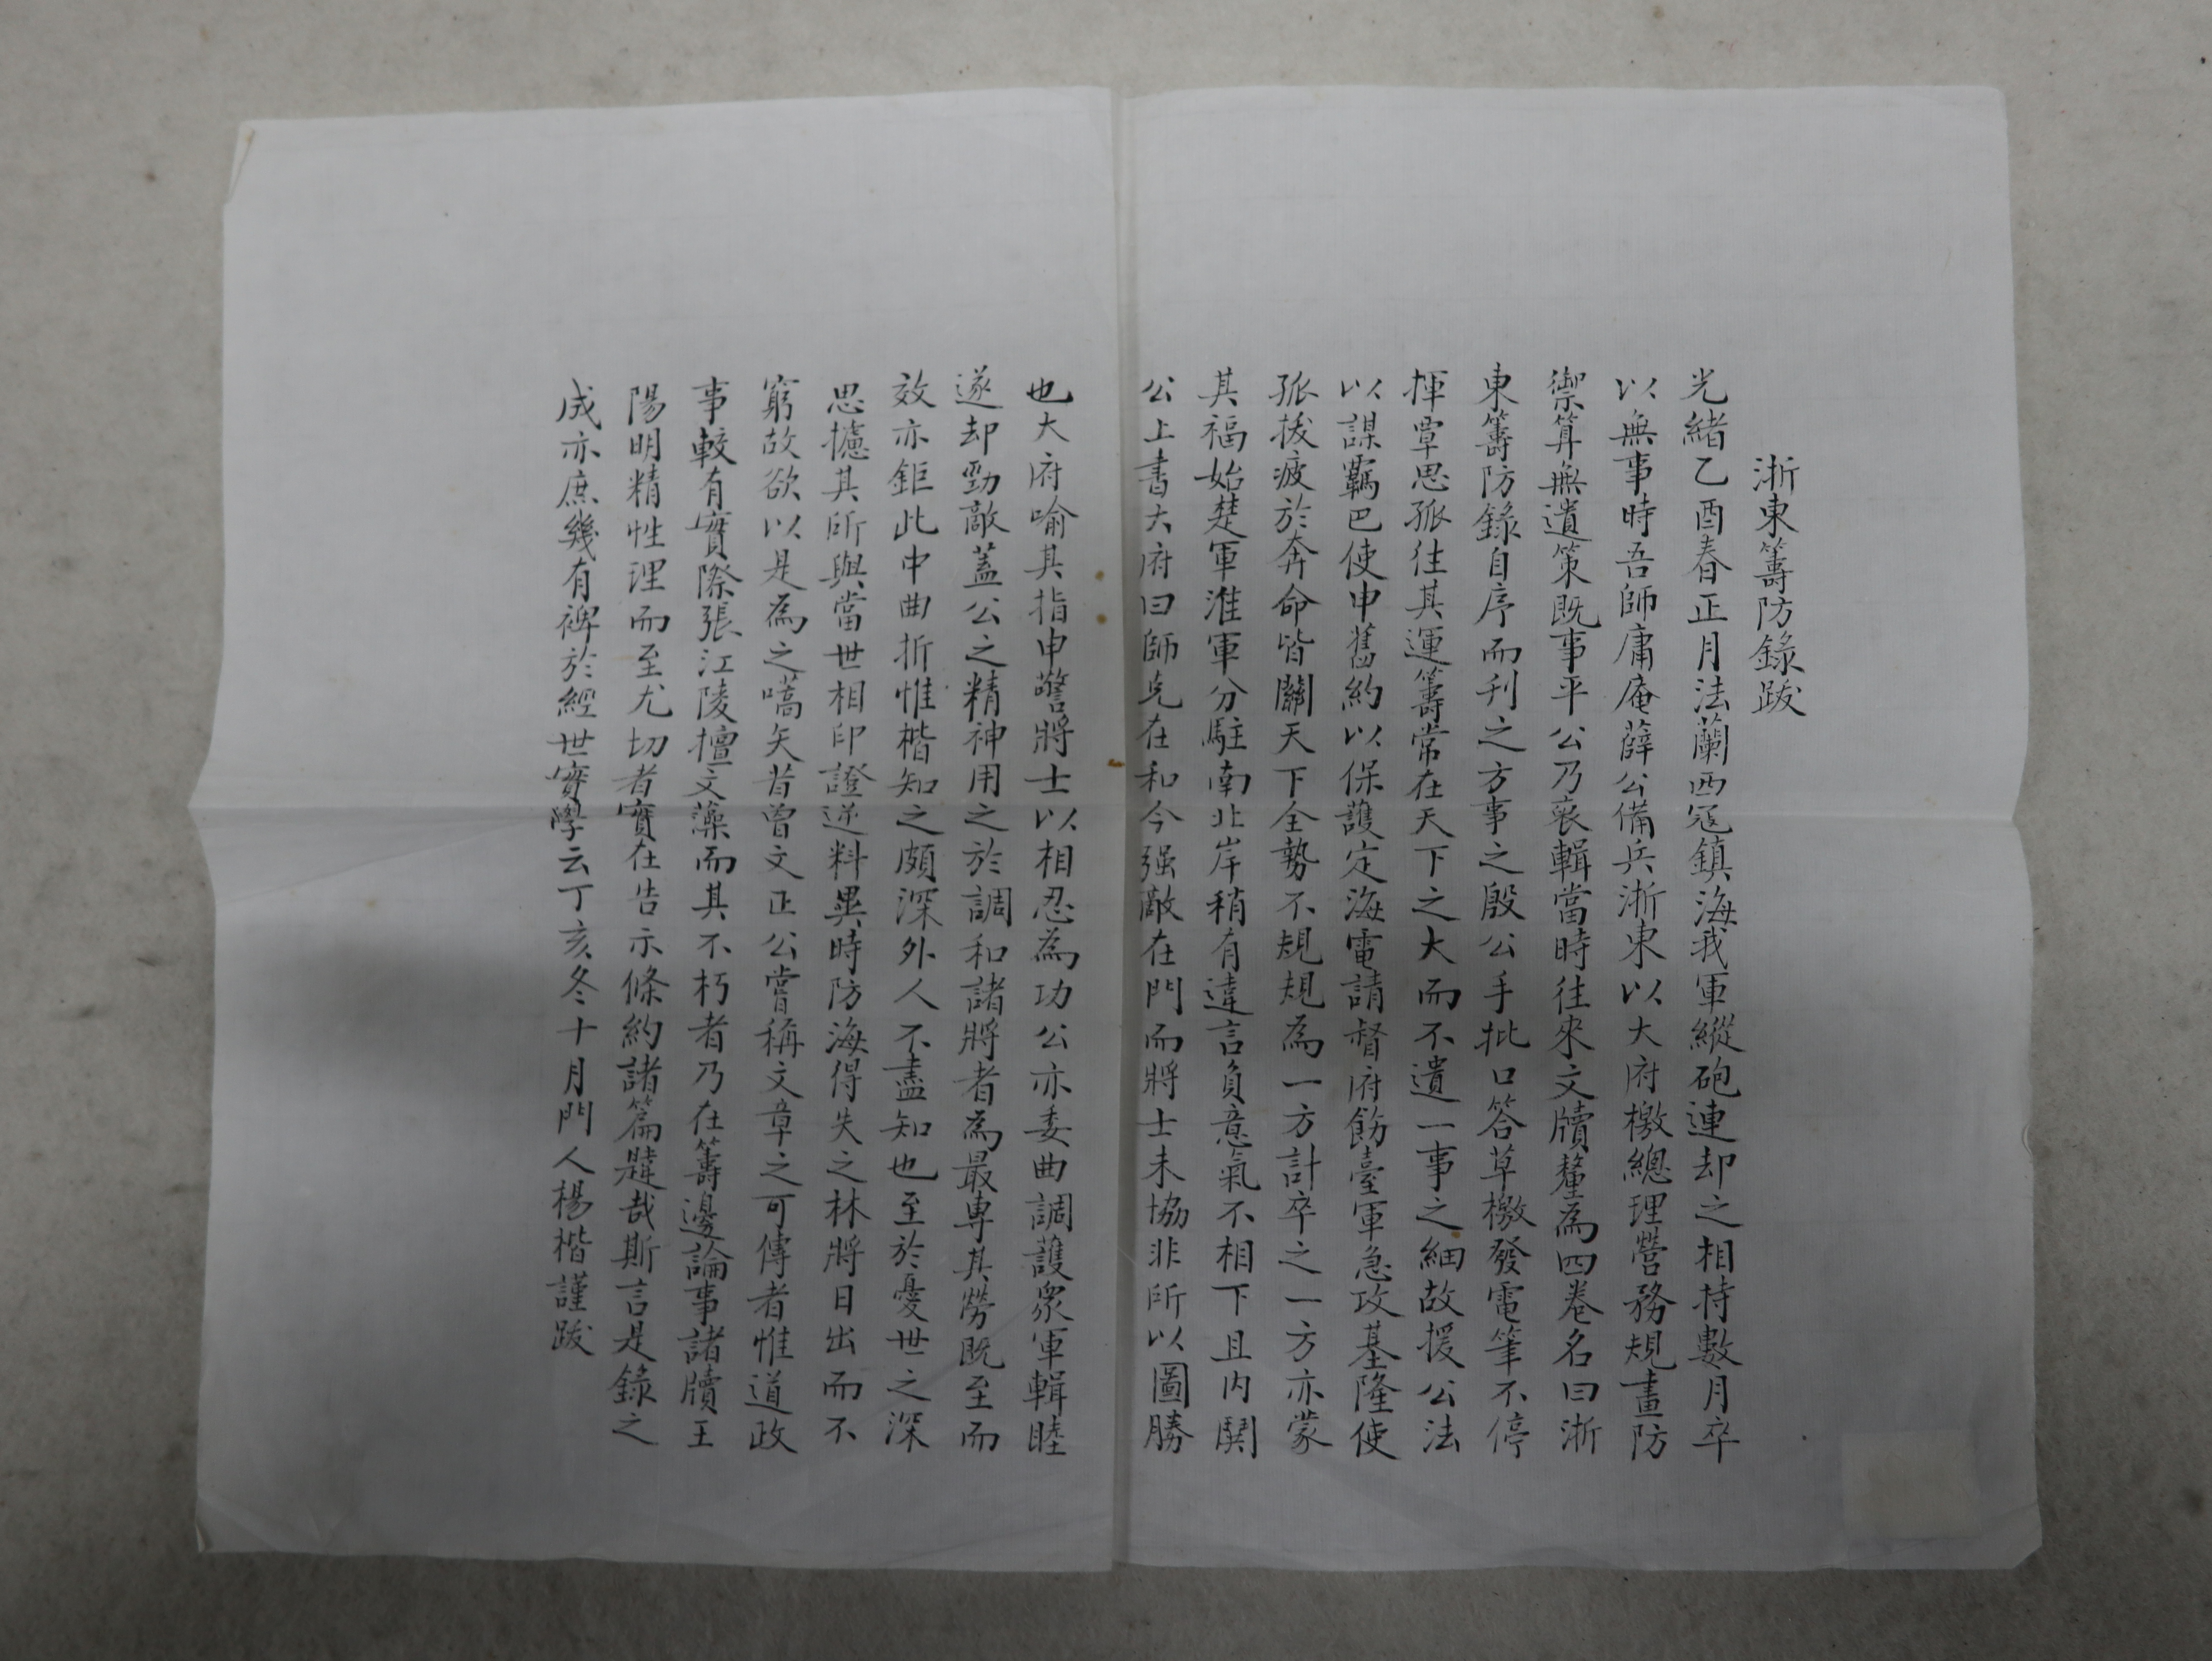 浙東籌防錄跋
光緒乙酉春正月法蘭西寇鎮海我軍縱砲連却之相持數月卒
以無事時吾師庸庵薛公備兵浙東以大府檄總理營務規畫防
禦算無遺策既事平公乃裒輯當時往來文牘釐為四卷名曰浙
東籌防錄自序而刋之方事之殷公手批口答草檄發電筆不停
揮覃思孤往其運籌常在天下之大而不遺一事之細故援公法
以謀羈巴使申舊約以保護定海電請督府飭臺軍急攻基隆使
孤拔疲於奔命皆關天下全勢不規規為一方計卒之一方亦蒙
其福始楚軍淮軍分駐南北岸稍有違言負意氣不相下且内鬨
公上書大府曰師克在和今强敵在門而將士未協非所以圖勝
也大府喻其指申警將士以相忍為功公亦委曲調護眾軍輯睦
遂却勁敵蓋公之精神用之於調和諸將者為最專其勞既至而
效亦鉅此中曲折惟楷知之頗深外人不盡知也至於憂世之深
思攄其所與當世相印證逆料異時防海得失之林將日出而不
窮故欲以是為之嚆矢昔曾文正公嘗稱文章之可傳者惟道政
事較有實際張江陵擅文藻而其不朽者乃在籌邊論事諸牘王
陽明精性理而至尤切者實在告示條約諸篇韙哉斯言是錄之
成亦庶幾有裨於經世實學云丁亥冬十月門人楊楷謹跋